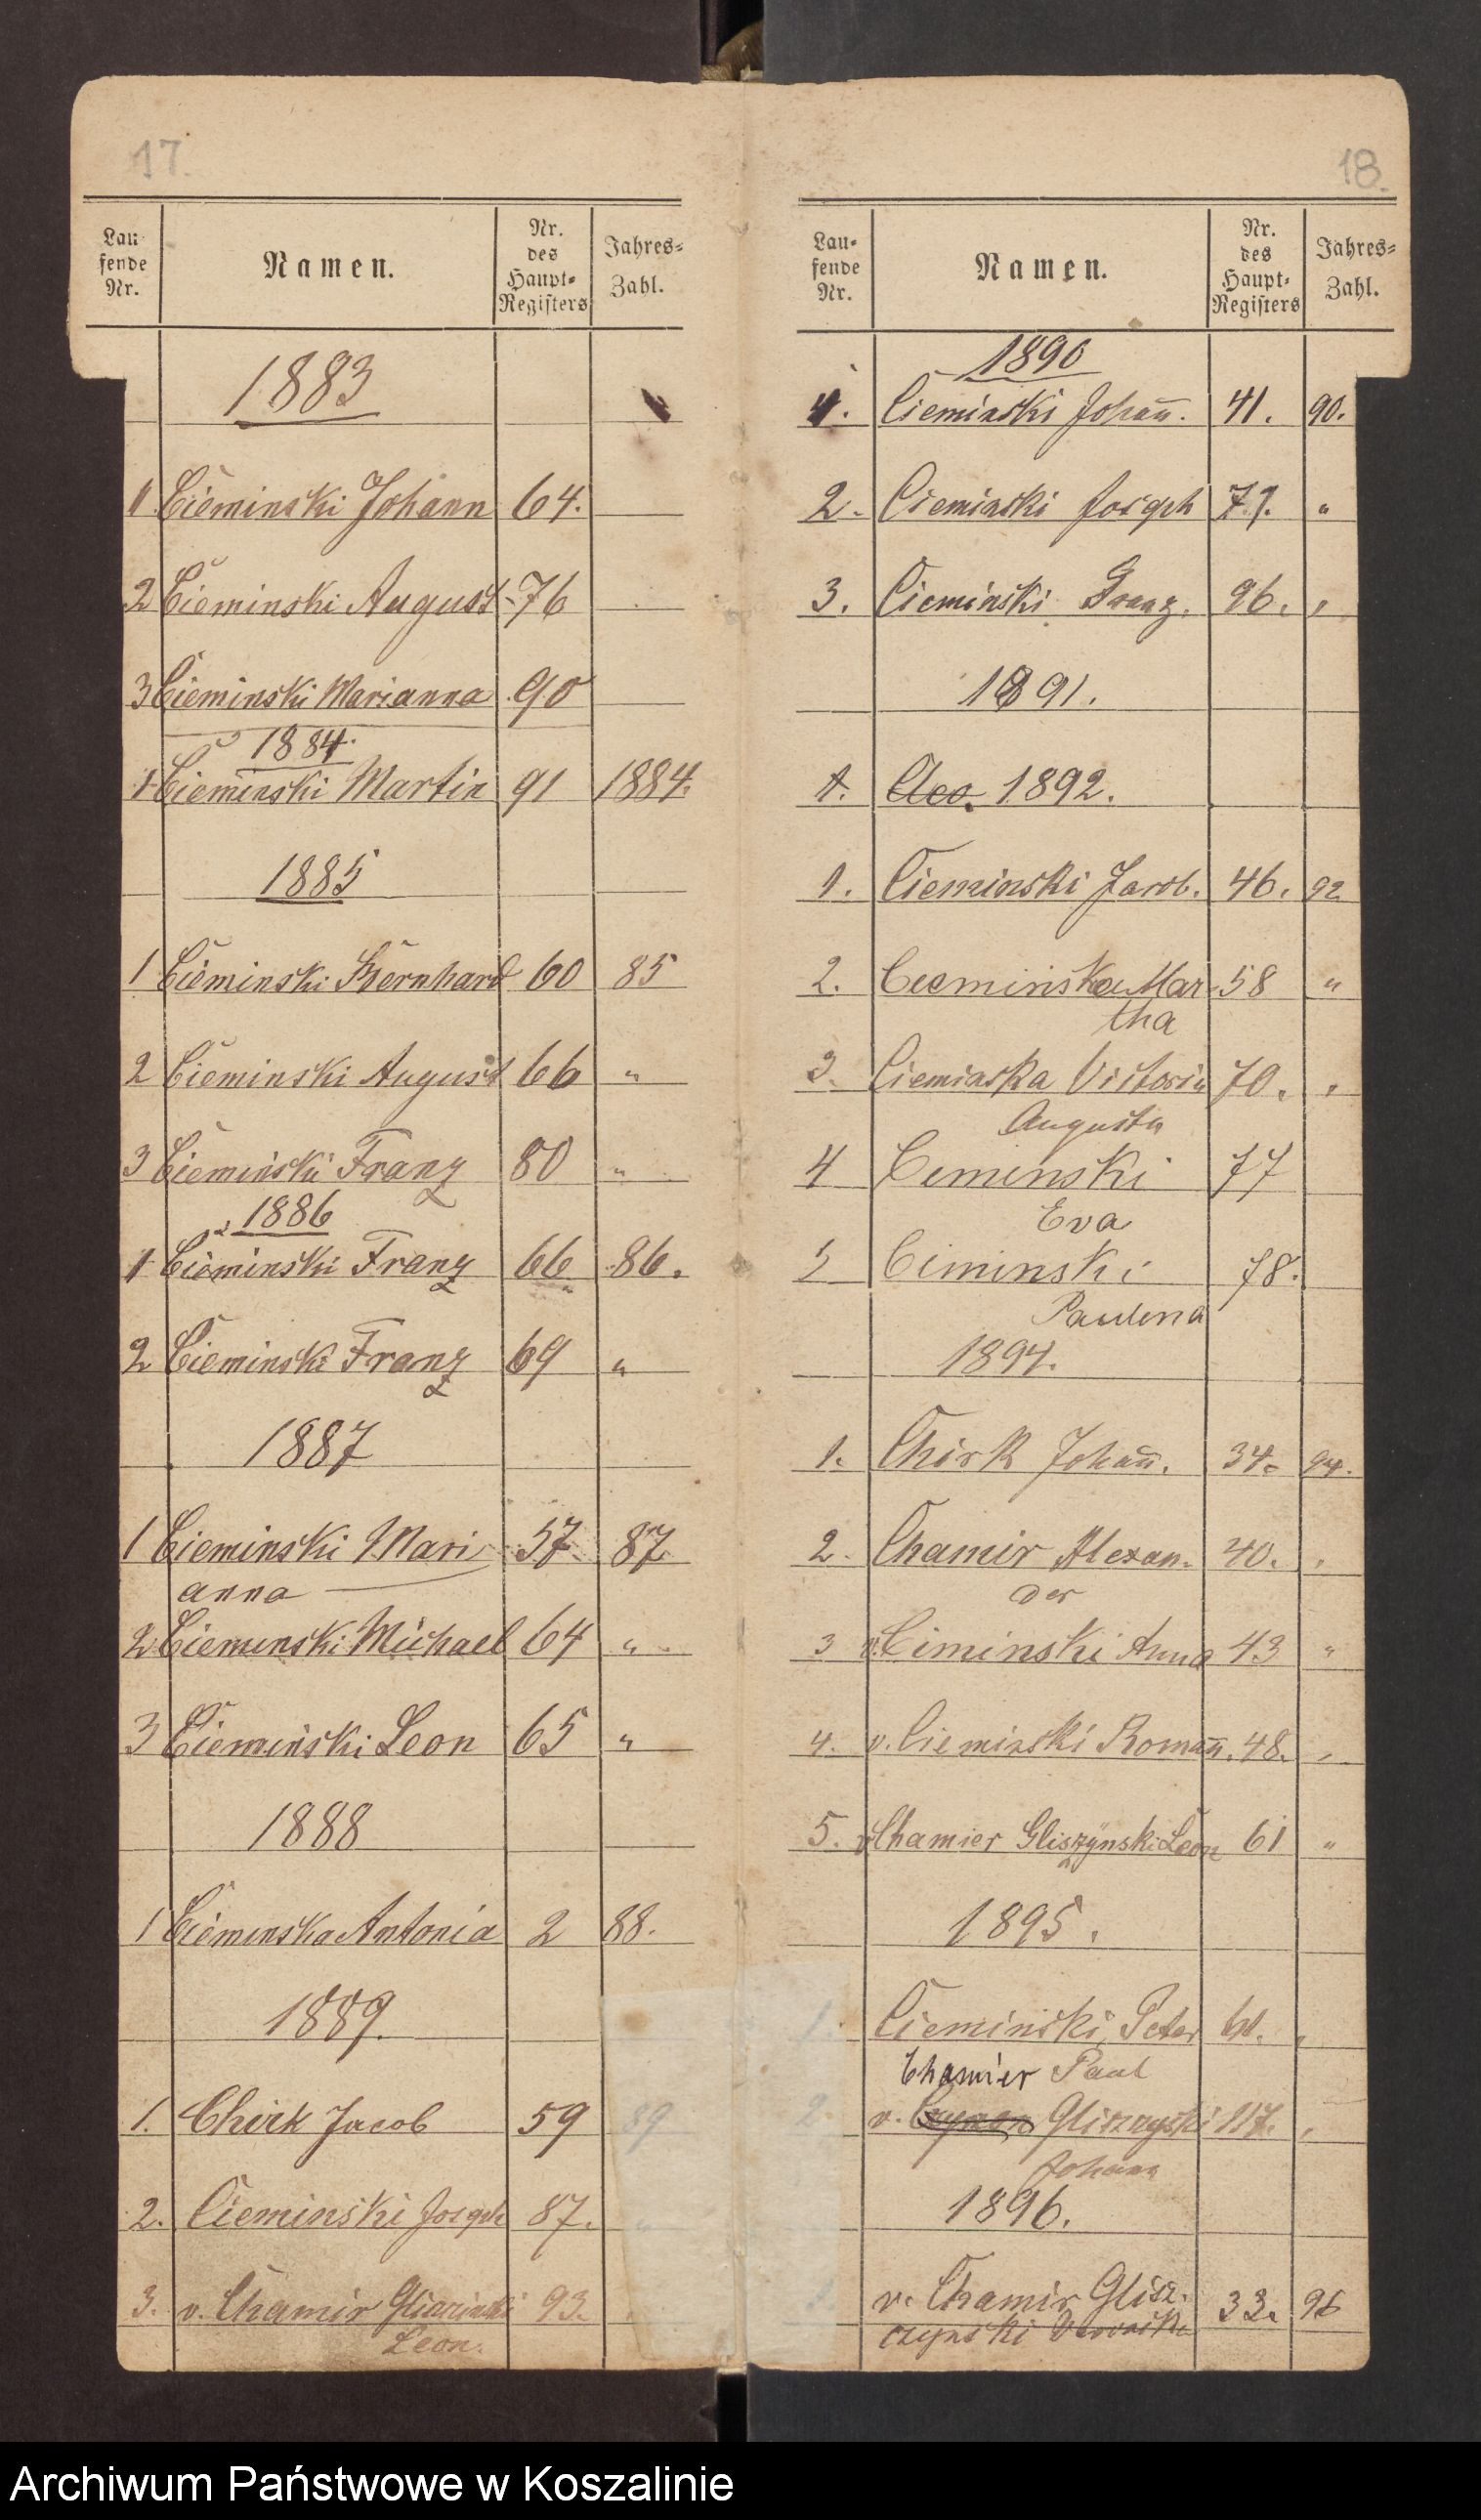 17.
Lau
fende
Nr.
Namen.
Nr.
des
Haupt-
Registers
Jahres-
Zahl.
1883
1 Cieminski Johann 64.
2 Cieminski August 76
3 Cieminski Marianna 90
1884.
1 Cieminski Martin 91 1884.
1885
1 Cieminski Bernhard 60 85
2 Cieminski August 66 "
3 Cieminski Franz 80 "
1886
1 Cieminski Franz 66 86.
2 Cieminski Franz 69 "
1887
1 Cieminski Mari 57 87
anna
2 Cieminski Michael 64 "
3 Cieminski Leon 65 "
1888
1 Cieminska Antonia 2 88.
1889.
1. Chirk Jacob 59 89
2. Cieminski Joseph 87. "
3. v. Chamir 93.
Leon.
18.
Lau-
fende
Nr.
Namen.
Nr.
des
Haupt-
Registers
Jahres-
Zahl.
1890
1. Cieminski Johan̄. 41. 90.
2. Cieminski Joseph 71. "
3. Cieminski Franz. 96. "
1891.
1. 1892.
1. Cieminski Jacob. 46. 92
2. Cieminska Mar 58 "
tha
3. Cieminska Victoria 70. "
Augusta
4 Ceminski 77
Eva
5 Ciminski 78.
Paulina
1894.
1. Chirk Johan̄. 34. 94.
2. Chamir Alexan- 40. "
der
3 v. Ciminski Anna 43 "
4. v. Cieminski Roman̄. 48. "
5. v Chamier Gliszynski Leon 61 "
1895.
1. Cieminski Peter 60. "
Chamier Paul
2. v. Gliszzyski 117. "
Johann
1896.
1 v. Chamir Glisz- 33. 96
czynski
Archiwum Państwowe w Koszalinie